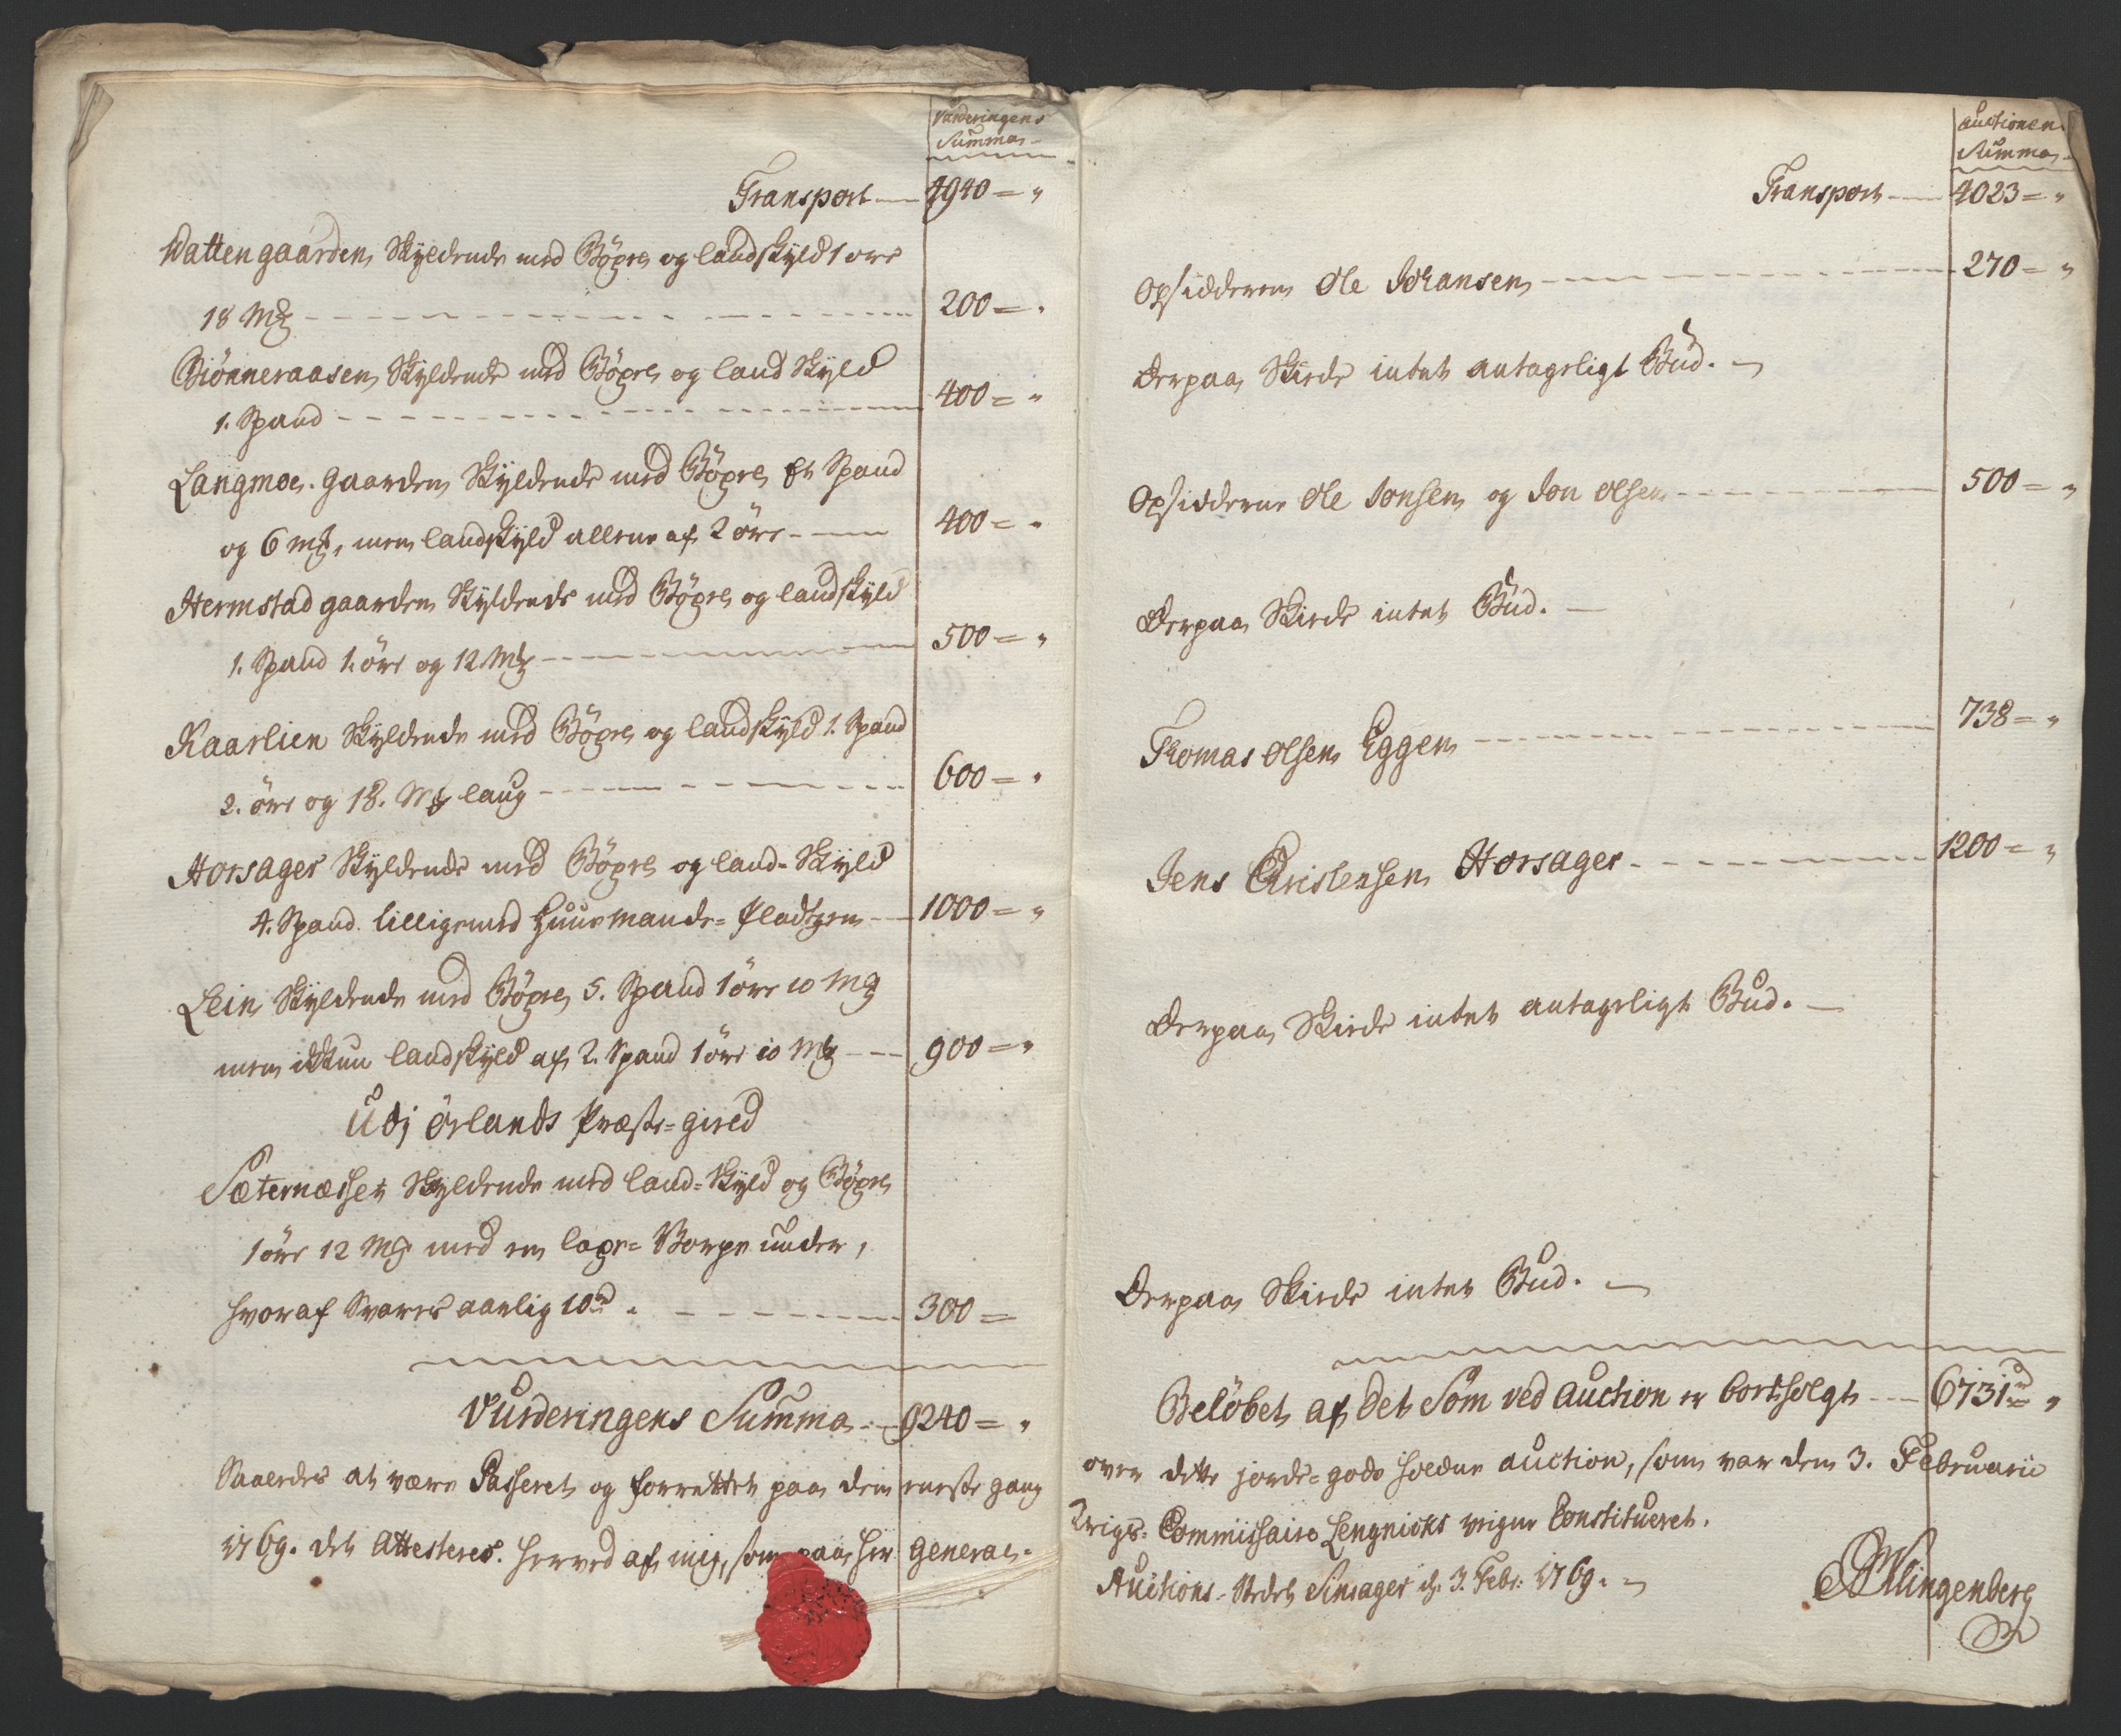 Vurderingens
Summa
Transport 4940 = "
Wattengaarden Skyldende med Bøxel og landskyld 1 øre
18 Mk 200 = "
Biönneraasen Skyldende med Bøxel og land Skyld
1. Spand 400 = "
Langmoe-gaarden Skyldende med Bøxel Et Spand
og 6 mk, men landskyld allene af 2 öre 400 = "
Hermstad gaarden Skyldende med Bøxel og landskyld
1. Spand 1. öre og 12 Mk 500 = "
Kaarlien Skyldende med Bøxel og landskyld 1. Spand
2. öre og 18. Mk laug 600 = "
Horsager Skyldende med Bøxel og land-Skyld
4. Spand tilligemed Huusmands-Pladtzen 1000 = "
Lein Skyldende med Bøxel 5. Spand 1 öre 10 Mk
men ikkun landskyld af 2. Spand 1 öre 10 Mk 900 = "
Udj Örlands Præste-gield
Sæternæsset Skyldende med land-Skyld og Bøxel
1 öre 12 Mk med en laxe-Vorpe under,
hvoraf Svares aarlig 10 d. 300 =
Vurderingens Summa 9240 = "
Saaledes at være Passeret og forrettet paa den eneste gang
1769. det Attesteres herved af mig, som paa Herr General-
Auctionens
Summa
Transport 4023 = "
Opsidderen Ole Johansen 270 = "
Derpaa Skeede intet antageligt Bud.
Opsidderne Ole Jonsen og Jon Olsen 500 = "
Derpaa Skeede intet Bud.
Thomas Olsen Eggen 738 = "
Jens Christensen Horsager 1200 = "
Derpaa Skeede intet antageligt Bud.
Derpaa Skeede intet Bud.
Belöbet af det Som ved Auction er bortsolgt 6731 d "
over dette jorde-gods holdne auction, som var den 3. Februarii
Krigs-Commissaire Lengnicks vegne Constitueret.
Auctions-Stedet Sinsager d. 3. Febr: 1769.
Klingenberg